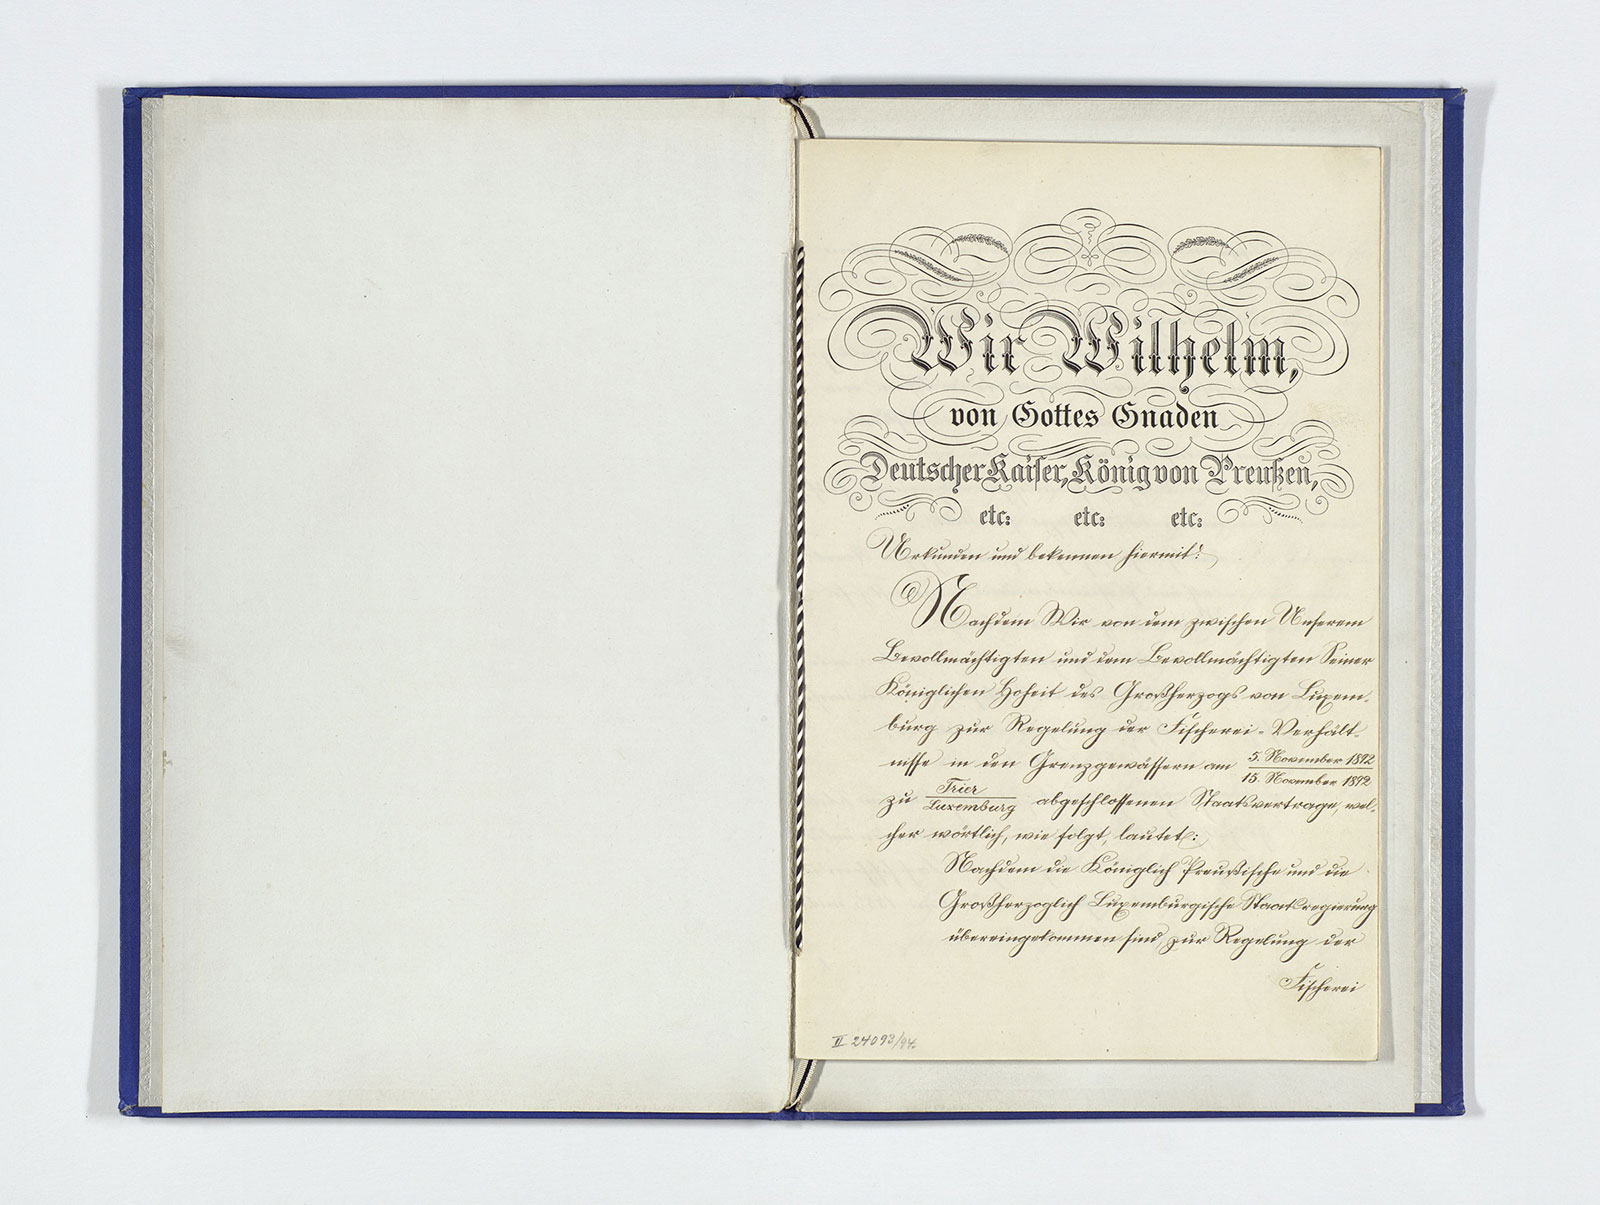 Wir Wilhelm,
von Gottes Gnaden
Deutscher Kaiser, König von Preußen,
etc: etc: etc:
Urkunden und bekennen hiermit:
Nachdem Wir von dem zwischen Unserem
Bevollmächtigten und dem Bevollmächtigten Seiner
Königlichen Hoheit des Großherzogs von Luxem-
burg zur Regelung der Fischerei-Verhält-
nisse in den Grenzgewässern am 5. November 1892
15. November 1892
zu Trier
Luxemburg abgeschlossenen Staatsvertrage, wel-
cher wörtlich, wie folgt, lautet:
Nachdem die Königlich Preußische und die
Großherzoglich Luxemburgische Staatsregierung
übereingekommen sind, zur Regelung der
Fischerei
II 24093/94.